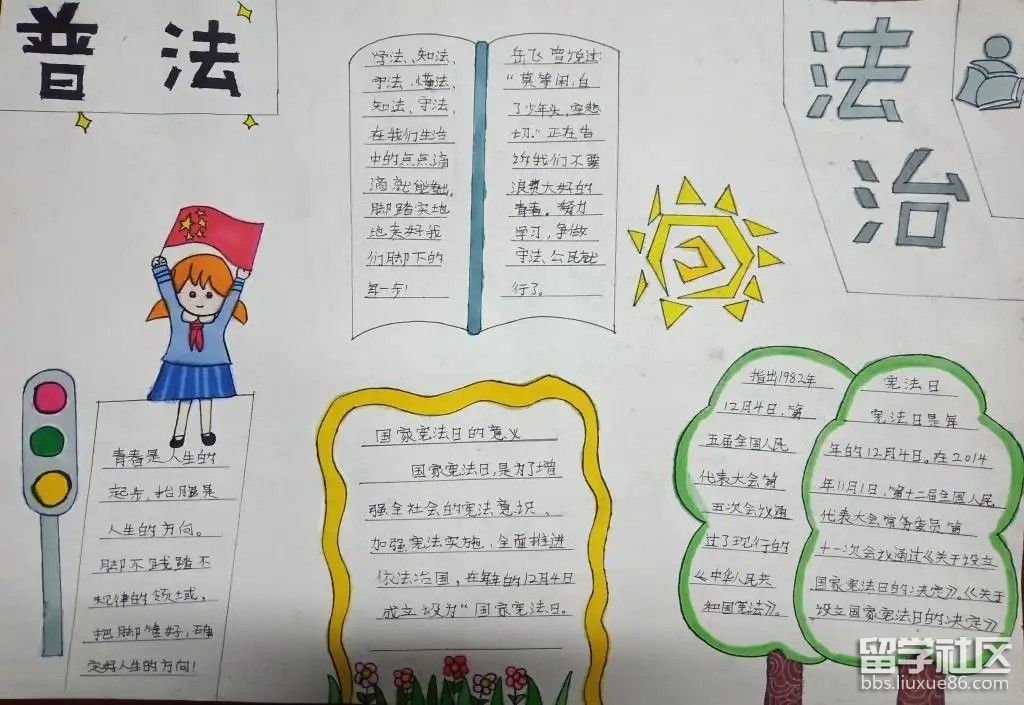 普法
学法、知法、
守法、懂法、
知法、守法,
在我们生活
中的点点滴
滴就能看出,
脚踏实地
地走好我
们脚下的
每一步!
岳飞曾说过:
“莫等闲,白
了少年头,空悲
切.”正在告
诉我们不要
浪费大好的
青春。努力
学习,争做
守法公民就
行了。
法
治
青春是人生的
起步,抬腿是
人生的方向。
脚不践踏不
规律的领域,
把脚

好,

定好人生的方向!
国家宪法日的意义
国家宪法日,是为了增
强全社会的宪法意识、
加强宪法实施、全面推进
依法治国,在每年的12月4日
成立设为“国家宪法日。
指出1982年
12月4日,第
五届全国人民
代表大会第
五次会议通
过了现行的
《中华人民共
和国宪法》。
宪法日
宪法日是每
年的12月4日。在2014
年11月1日,第十二届全国人民
代表大会常务委员第
十一次会议通过《关于设立
国家宪法日的决定》。《关于
设立国家宪法日的决定》
留学社区
bbs.liuxue86.com